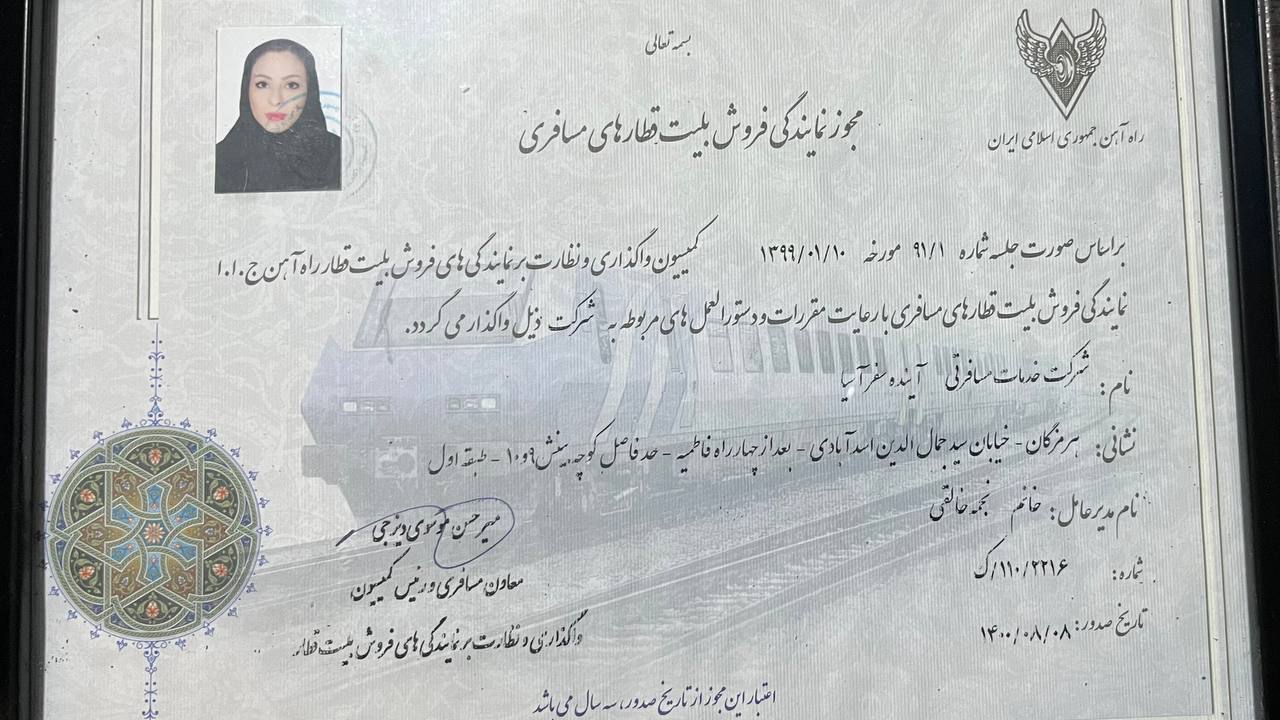 بسمه تعالی
راه آهن جمهوری اسلامی ایران
مجوز نمایندگی فروش بلیت قطارهای مسافری
براساس صورت جلسه شماره ۹۱/۱ مورخه ۱۳۹۹/۰۱/۱۰ کمیسیون واگذاری و نظارت بر نمایندگی های فروش بلیت قطار راه آهن ج.ا.ا
نمایندگی فروش بلیت قطارهای مسافری با رعایت مقررات و دستورالعمل های مربوطه به شرکت ذیل واگذار می گردد.
نام: شرکت خدمات مسافرتی آینده سفر آسیا
نشانی: هرمزگان - خیابان سید جمال الدین اسدآبادی - بعد از چهارراه فاطمیه - حد فاصل کوچه بینش ۹ و ۱۰ - طبقه اول
نام مدیرعامل: خانم نجمه خالقی
شماره: ۱۱۰/۲۲۱۶/ک
تاریخ صدور: ۱۴۰۰/۰۸/۰۸
میرحسن موسوی دیزجی
معاون مسافری و رئیس کمیسیون
واگذاری و نظارت بر نمایندگی های فروش بلیت قطار
اعتبار این مجوز از تاریخ صدور، سه سال می باشد